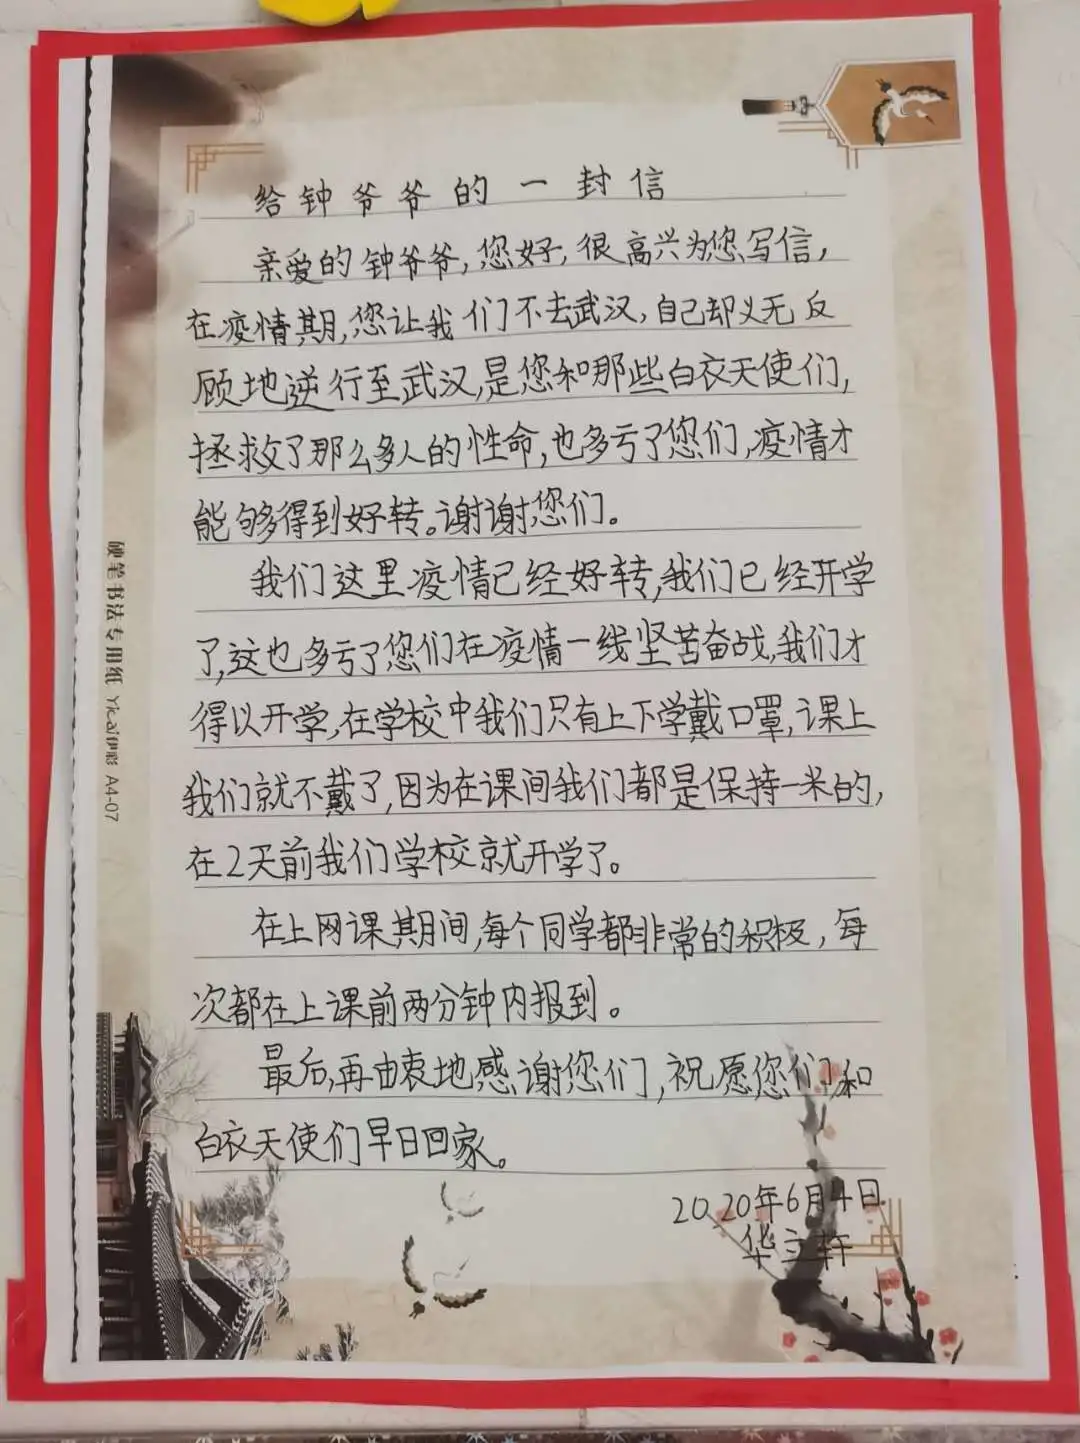 给钟爷爷的一封信
亲爱的钟爷爷,您好,很高兴为您写信,
在疫情期,您让我们不去武汉,自己却义无反
顾地逆行至武汉,是您和那些白衣天使们,
拯救了那么多人的性命,也多亏了您们,疫情才
能够得到好转。谢谢您们。
我们这里疫情已经好转,我们已经开学
了,这也多亏了您们在疫情一线坚苦奋战,我们才
得以开学,在学校中我们只有上下学戴口罩,课上
我们就不戴了,因为在课间我们都是保持一米的,
在2天前我们学校就开学了。
在上网课期间,每个同学都非常的积极,每
次都在上课前两分钟内报到。
最后,再由衷地感谢您们,祝愿您们和
白衣天使们早日回家。
2020年6月4日
华立轩
硬笔书法专用纸 Yicai伊彩 A4-07